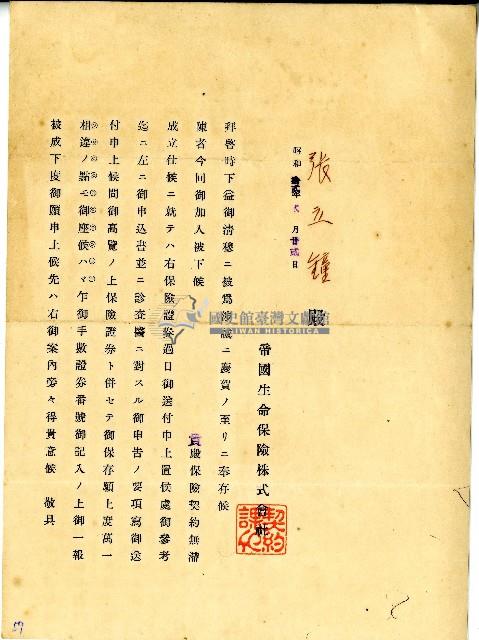 張立鐘 殿
昭和拾貳年 月廿貳日
帝國生命保險株式會社
契約課
拜啓時下益御淸穆ニ被爲渉誠ニ慶賀ノ至リニ奉存候
陳者今回御加入被下候 貴殿保險契約無滯
成立仕候ニ就テハ右保險證券過日御送付申上置候處御參考
迄ニ左ニ御申込書並ニ診査醫ニ對スル御申告ノ要項寫御送
付申上候間御高覽ノ上保險證券ト併セテ御保存願上度萬一
相違ノ點モ御座候ハヾ乍御手數證券番號御記入ノ上御一報
被成下度御願申上候先ハ右御案內旁々得貴意候 敬具
國史館臺灣文獻館
TAIWAN HISTORICA